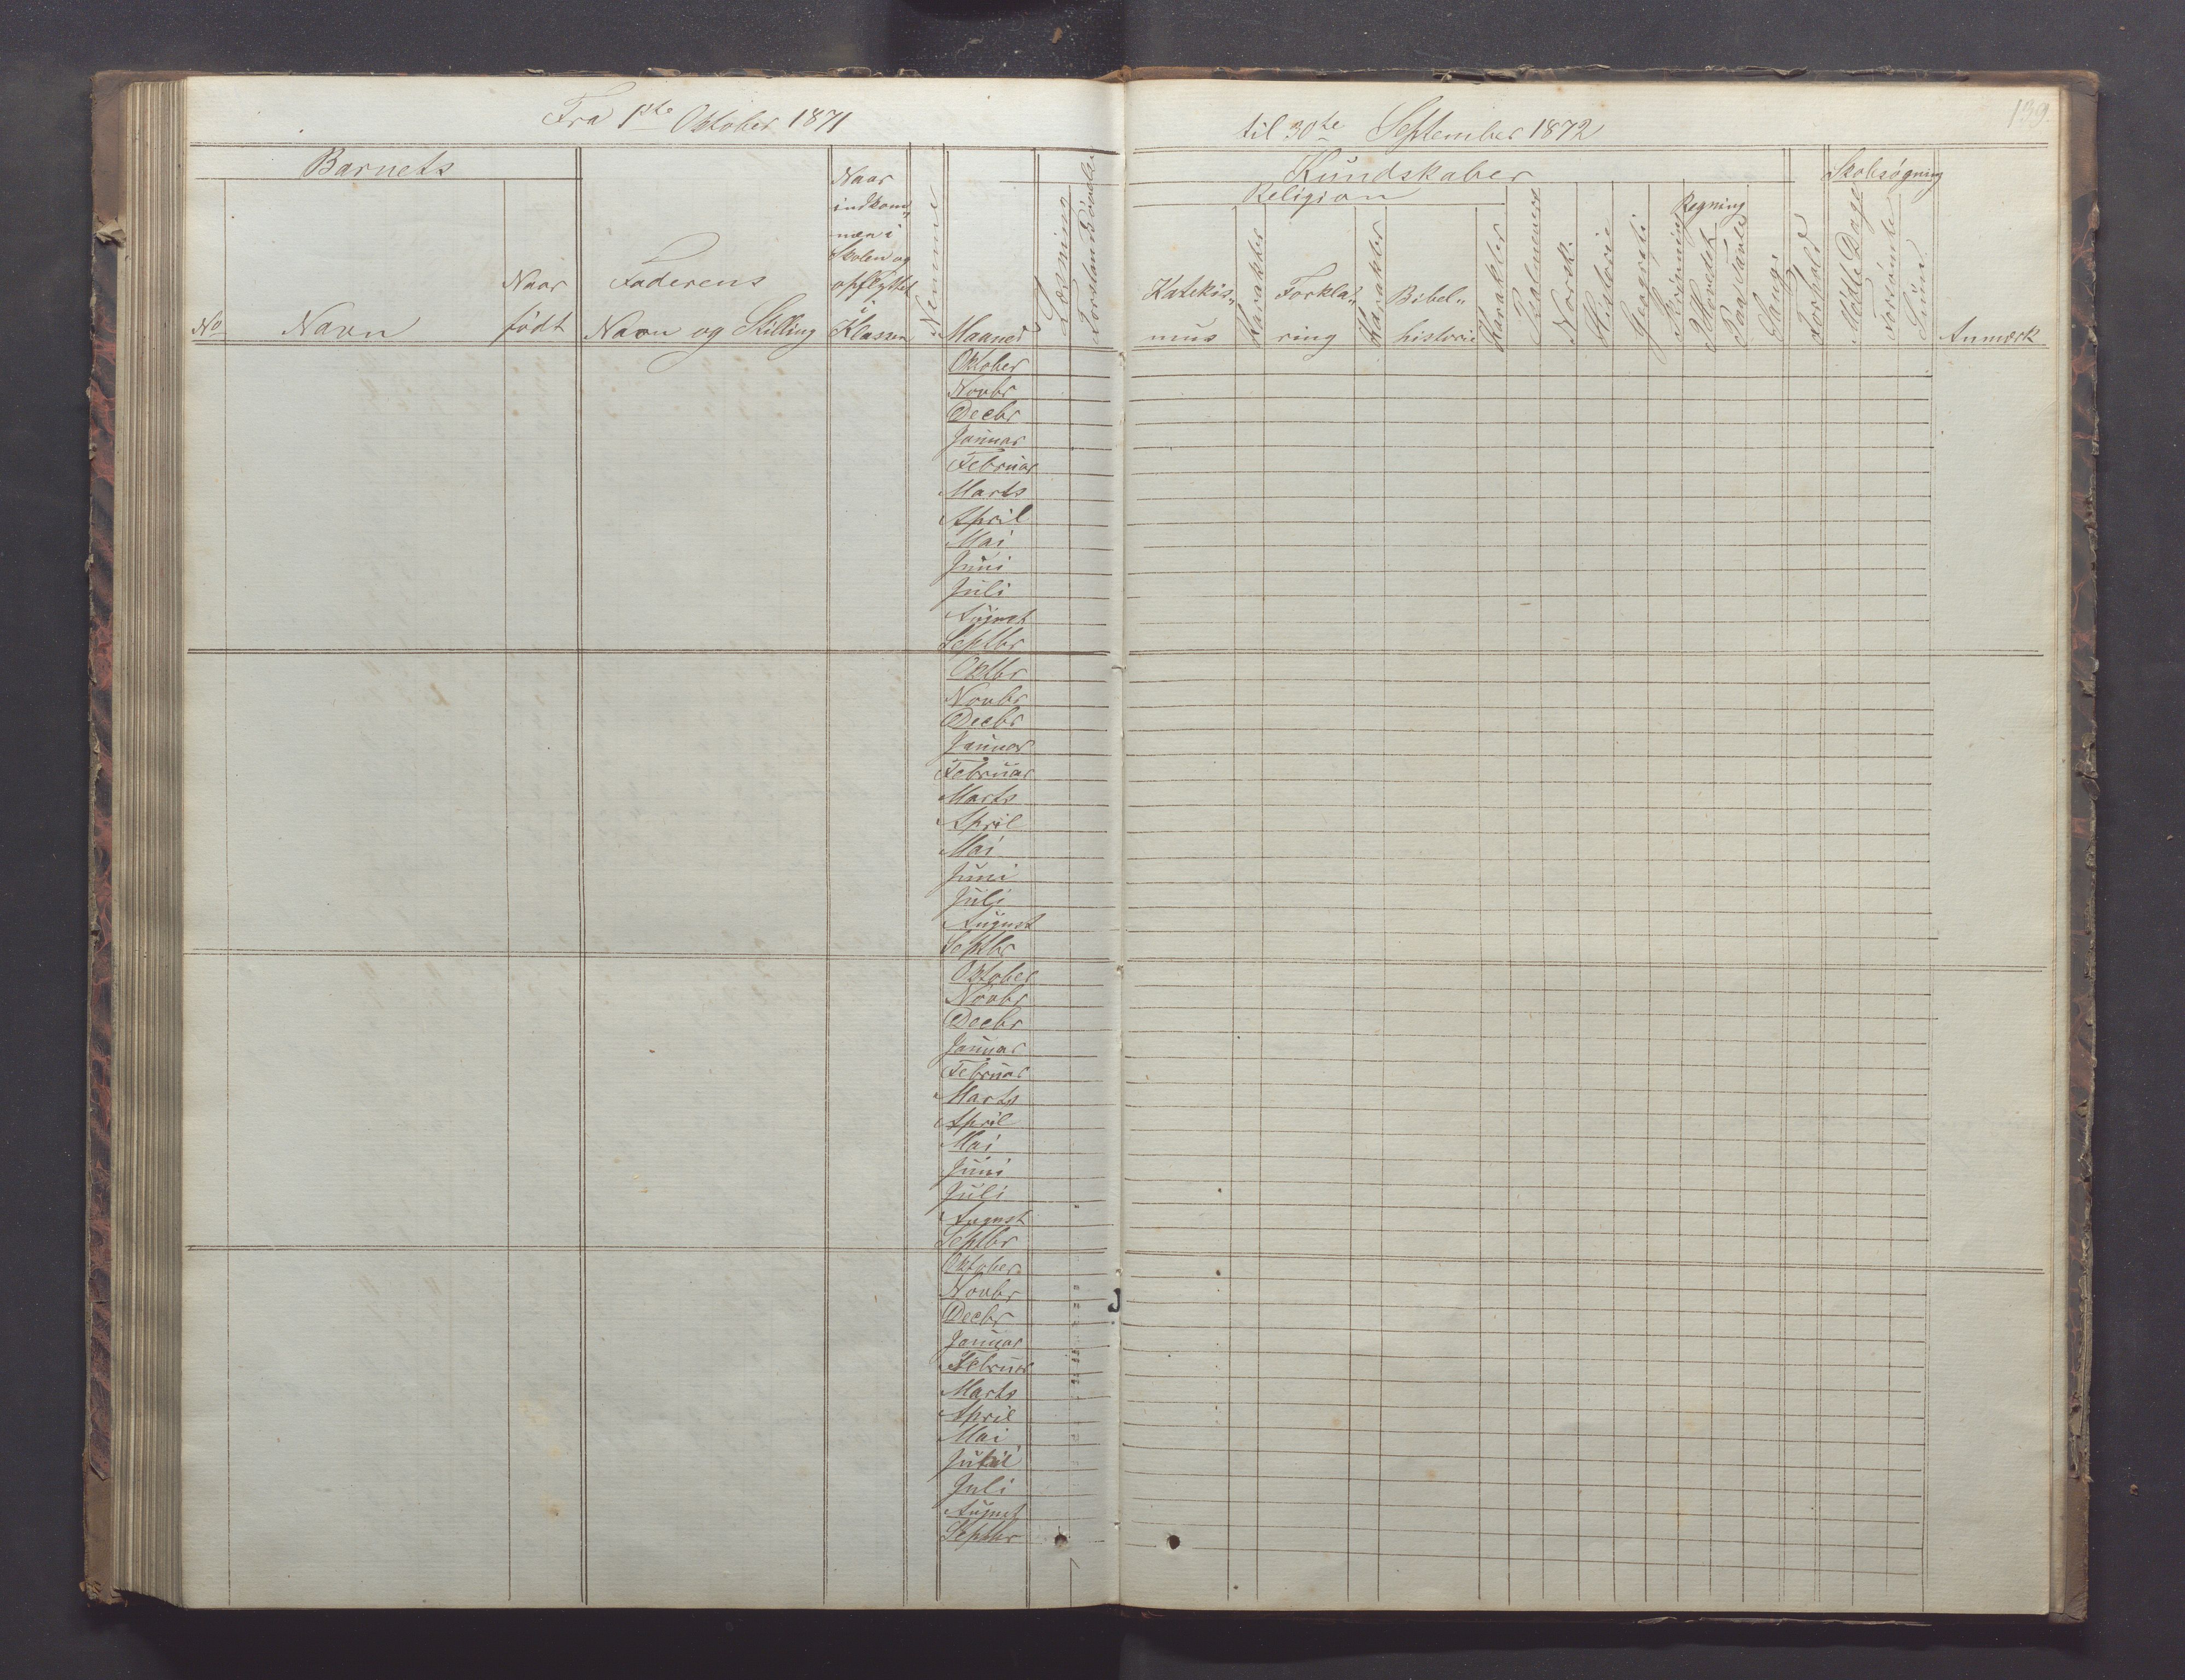 Fra 1ste Oktober 1871
til 30te September 1872
139.
Barnets
No
Navn
Naar
født
Faderens
Navn og Stilling
Naar
indkom„
men i
Skolen og
opflyttet
i
Klassen
Nemme
Maaned
Læsning
Forstandsøvelse
Kundskaber
Religion
Katekis„
mus
Karakter
Forkla„
ring
Karakter
Bibel„
historie
Karakter
Psalmevers
Norsk.
Historie
Geografi
Skrivning
Regning
I Hovedet
Paa Tavle
Sang.
Forhold
Skolesøgning
Mødte Dage
Forsømte
Sum
Anmærk
Oktober
Novbr
Decbr
Januar
Februar
Marts
April
Mai
Juni
Juli
August
Septbr
Oktbr
Novbr
Decbr
Januar
Februar
Marts
April
Mai
Juni
Juli
August
Septbr
Oktober
Novbr
Decbr
Januar
Februar
Marts
April
Mai
Juni
Juli
August
Septbr
Oktober
Novbr
Decbr
Januar
Februar
Marts
April
Mai
Juni
Juli
August
Septbr